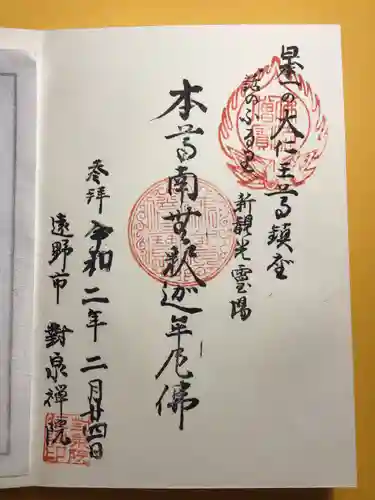 日本一の大仁王尊鎮座
話のふる里
新観光霊場
本尊南無釈迦牟尼佛
参拝 令和二年二月廿四日
遠野市 對泉禅院